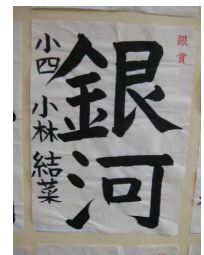 銀賞
銀河
小四 小林結菜